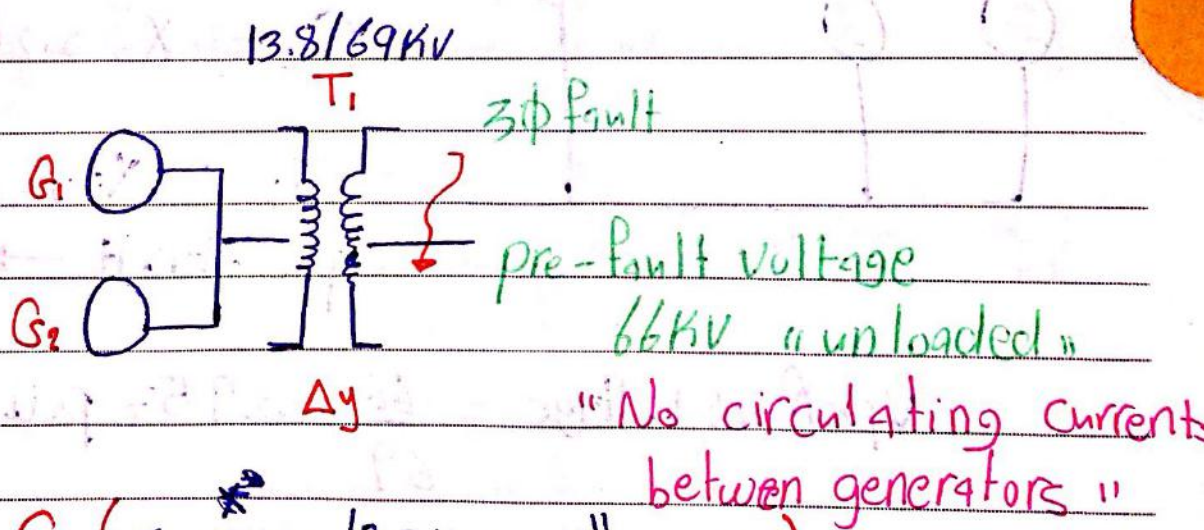 13.8/69KV
T1
3ф fault
G1
pre-fault vultage
G2
66KV "unloaded"
Δy
"No circulating currents
betwen generators"